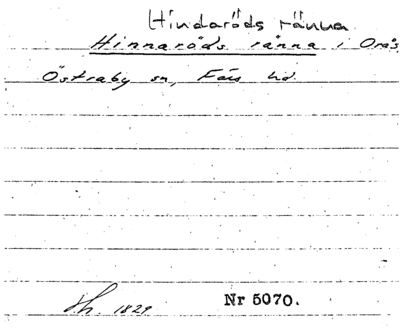 Hindaröds ränna
Hinnaröds ränna i Orås
Östraby sn, Färs hd.
Sk. 1829 Nr 5070.